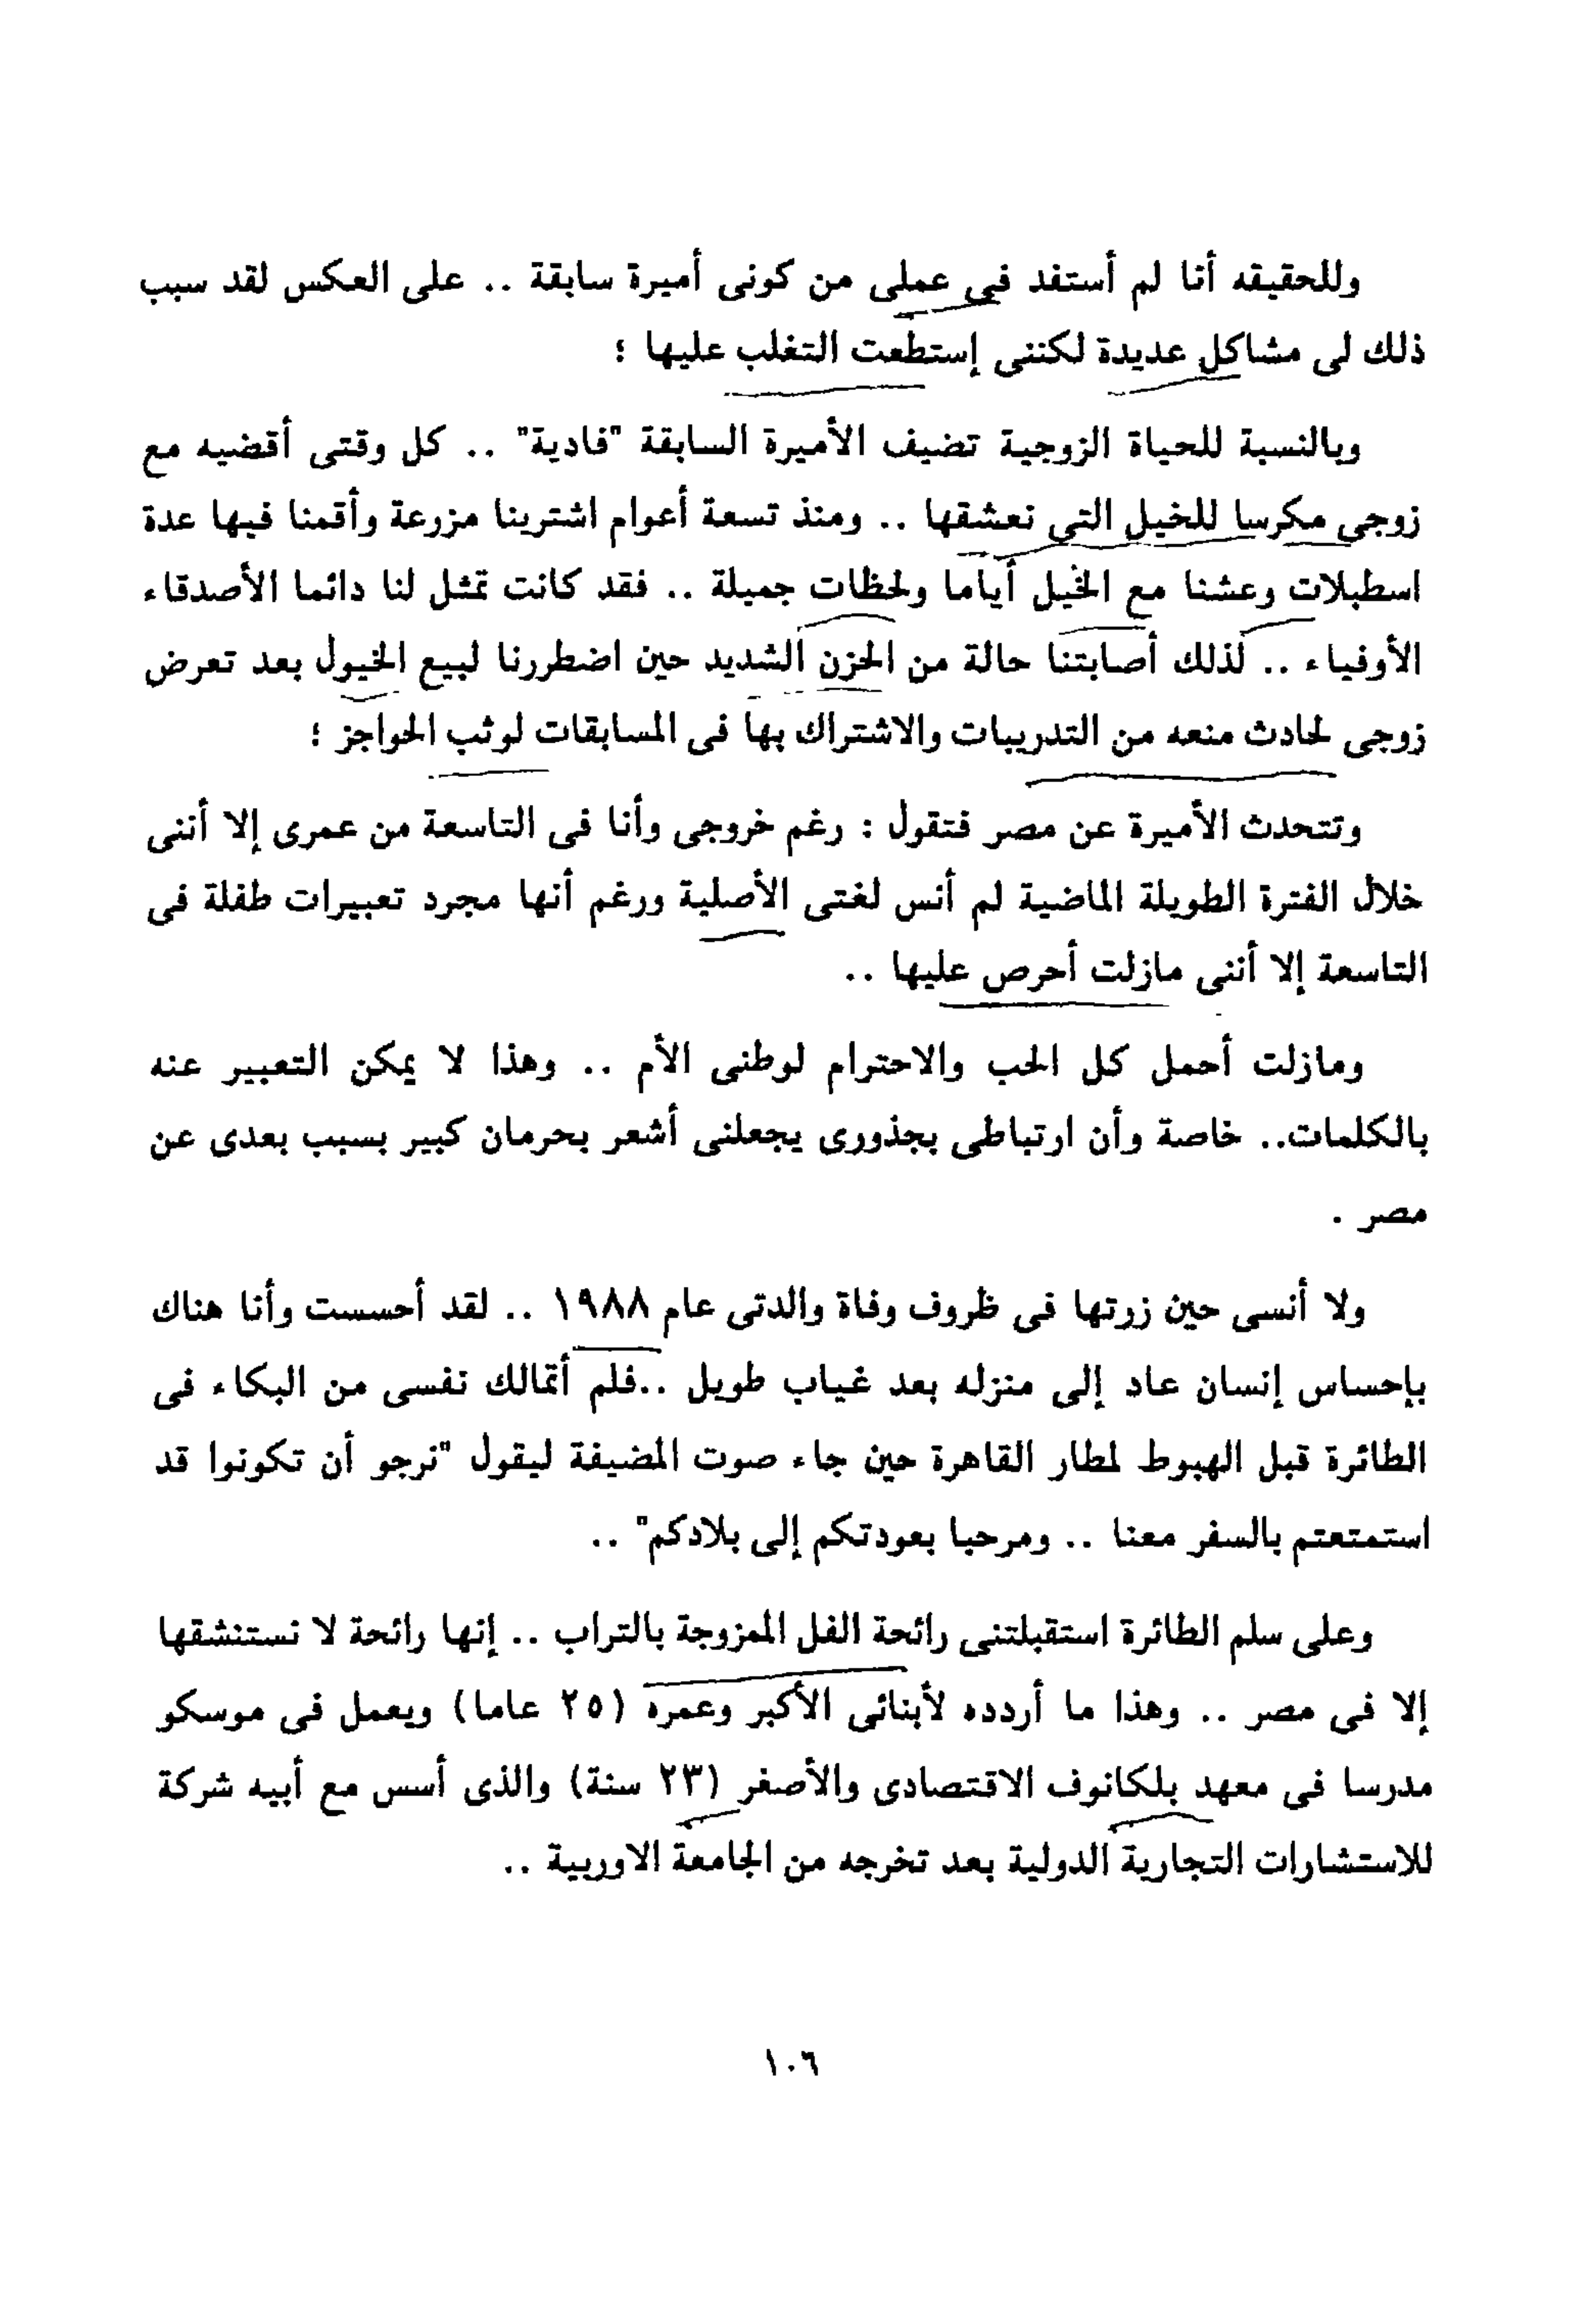 وللحقيقه أنا لم أستفد فى عملى من كونى أميرة سابقة .. على العكس لقد سبب
ذلك لى مشاكل عديدة لكننى إستطعت التغلب عليها ؛
وبالنسبة للحياة الزوجية تضيف الأميرة السابقة "فادية" .. كل وقتى أقضيه مع
زوجى مكرسا للخيل التى نعشقها .. ومنذ تسعة أعوام اشترينا مزرعة وأقمنا فيها عدة
اسطبلات وعشنا مع الخيل أياما ولحظات جميلة .. فقد كانت تمثل لنا دائما الأصدقاء
الأوفياء .. لذلك أصابتنا حالة من الحزن الشديد حين اضطررنا لبيع الخيول بعد تعرض
زوجى لحادث منعه من التدريبات والاشتراك بها فى المسابقات لوثب الحواجز ؛
وتتحدث الأميرة عن مصر فتقول : رغم خروجى وأنا فى التاسعة من عمرى إلا أننى
خلال الفترة الطويلة الماضية لم أنس لغتى الأصلية ورغم أنها مجرد تعبيرات طفلة فى
التاسعة إلا أننى مازلت أحرص عليها ..
ومازلت أحمل كل الحب والاحترام لوطنى الأم .. وهذا لا يمكن التعبير عنه
بالكلمات.. خاصة وأن ارتباطى بجذورى يجعلنى أشعر بحرمان كبير بسبب بعدى عن
مصر .
ولا أنسى حين زرتها فى ظروف وفاة والدتى عام ١٩٨٨ .. لقد أحسست وأنا هناك
بإحساس إنسان عاد إلى منزله بعد غياب طويل ..فلم أتمالك نفسى من البكاء فى
الطائرة قبل الهبوط لمطار القاهرة حين جاء صوت المضيفة ليقول "نرجو أن تكونوا قد
استمتعتم بالسفر معنا .. ومرحبا بعودتكم إلى بلادكم" ..
وعلى سلم الطائرة استقبلتنى رائحة الفل الممزوجة بالتراب .. إنها رائحة لا نستنشقها
إلا فى مصر .. وهذا ما أردده لأبنائى الأكبر وعمره (٢٥ عاما) ويعمل فى موسكو
مدرسا فى معهد بلكانوف الاقتصادى والأصغر (٢٣ سنة) والذى أسس مع أبيه شركة
للاستشارات التجارية الدولية بعد تخرجه من الجامعة الاوربية ..
١٠٦